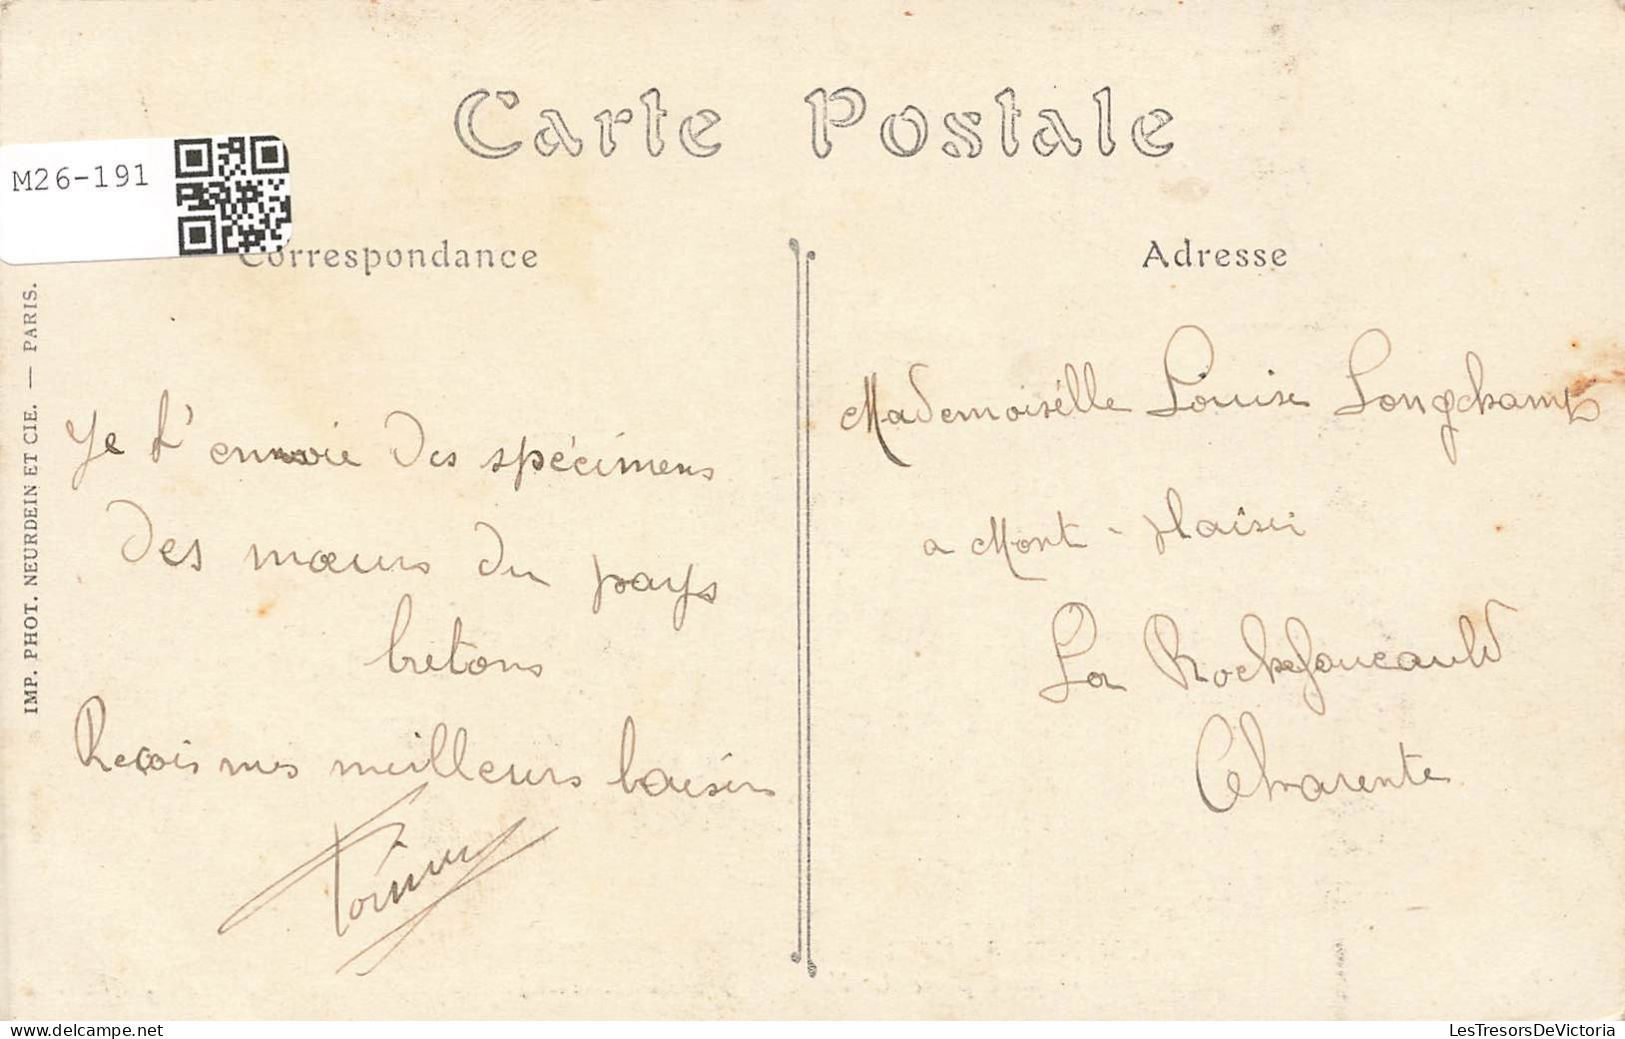 Carte Postale
M26-191
Correspondance
Adresse
IMP. PHOT. NEURDEIN ET CIE. — PARIS.
Je t'envoie des spécimens
des mœurs du pays
bretons
Reçois mes meilleurs baisers
Mademoiselle Louise Longchamps
a Mont-plaisir
La Rochefoucauld
Charente
www.delcampe.net
LesTresorsDeVictoria